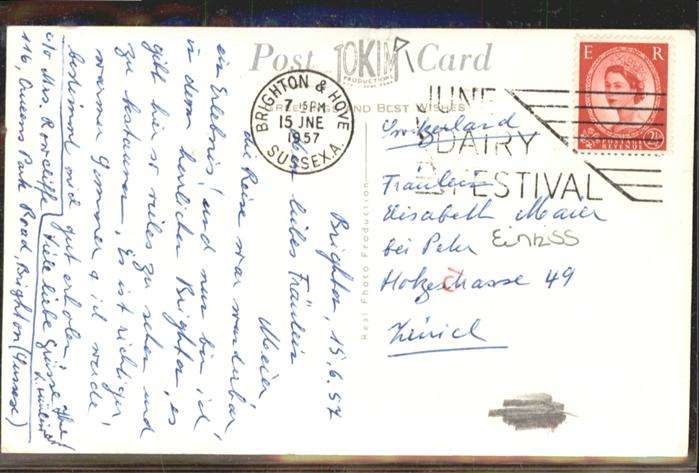 Post Card
TOKIM
PRODUCTIONS
GREETINGS AND BEST WISHES
BRIGHTON & HOVE
7 15 PM
15 JNE
1957
SUSSEX.A.
JUNE
DAIRY
FESTIVAL
E R
POSTAGE
REVENUE
2½
Switzerland
Fräulein
Elisabeth Maier
bei Peter
Einkss
49
Zürich
Real Photo Production
Brighton, 15.6.57
Mein liebes Fräulein
Maier,
die Reise war wunderbar,
ein Erlebnis! und nun bin ich
in dem herrlichen Brighton, es
gibt hier so vieles zu sehen und
zu bestaunen. Es ist richtiger,
warmer Sommer & ich werde
bestimmt mich gut erholen.
Viele liebe Grüsse Ihre
c/o Mrs. Rowcliffe
116 Queens Park Road, Brighton (Sussex)